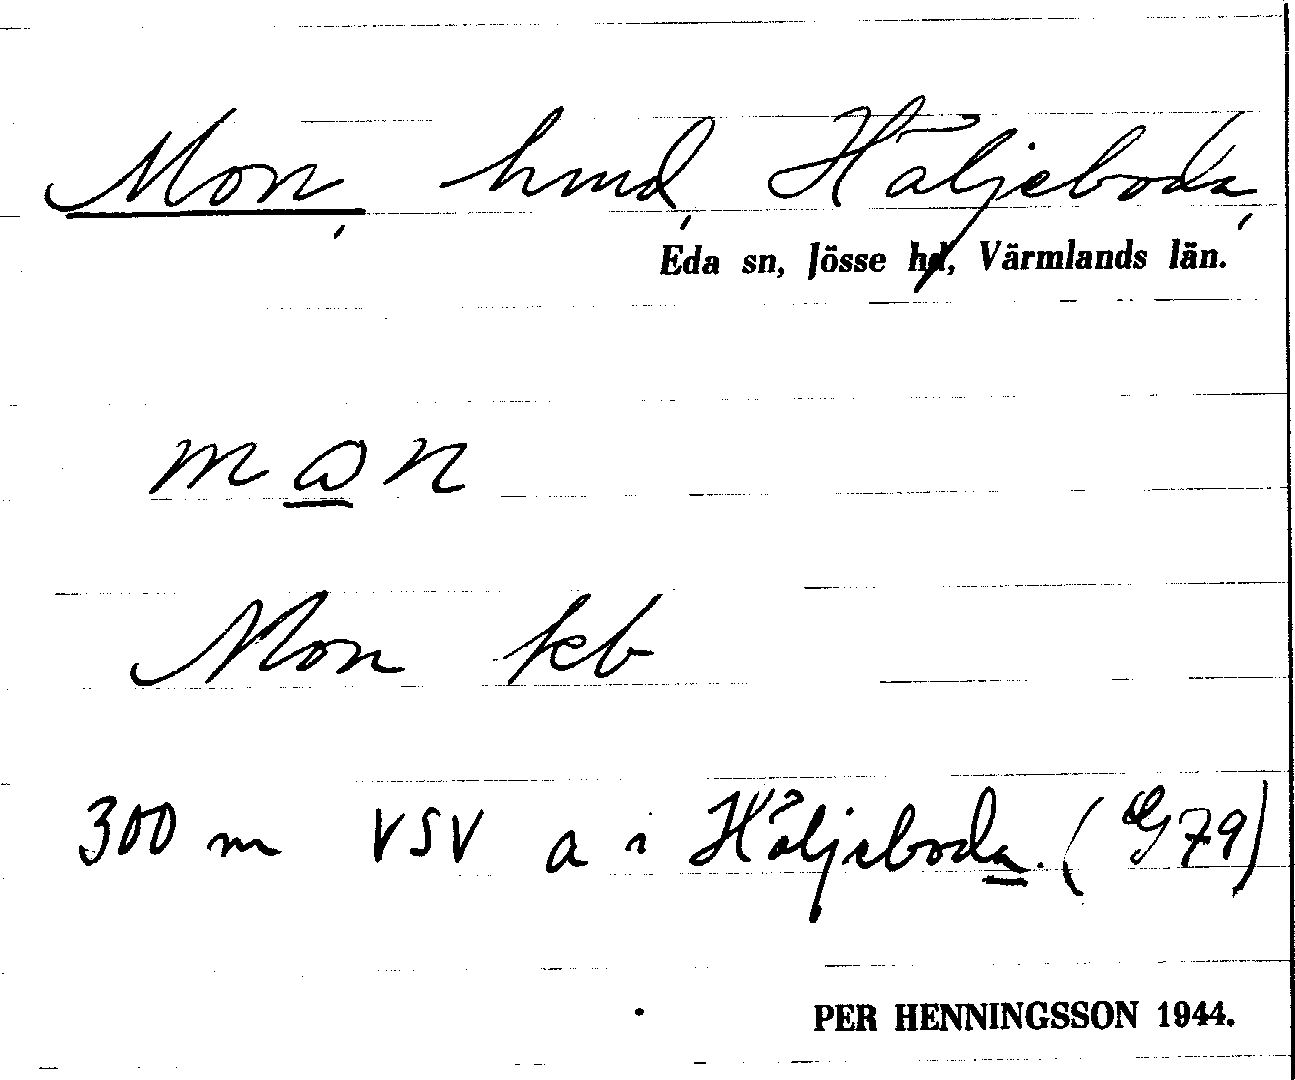 Mon, hmd, Häljeboda,
Eda sn, Jösse hd, Värmlands län.
mɷn
Mon kb
300 m VSV a i Häljeboda. (G79)
PER HENNINGSSON 1944.